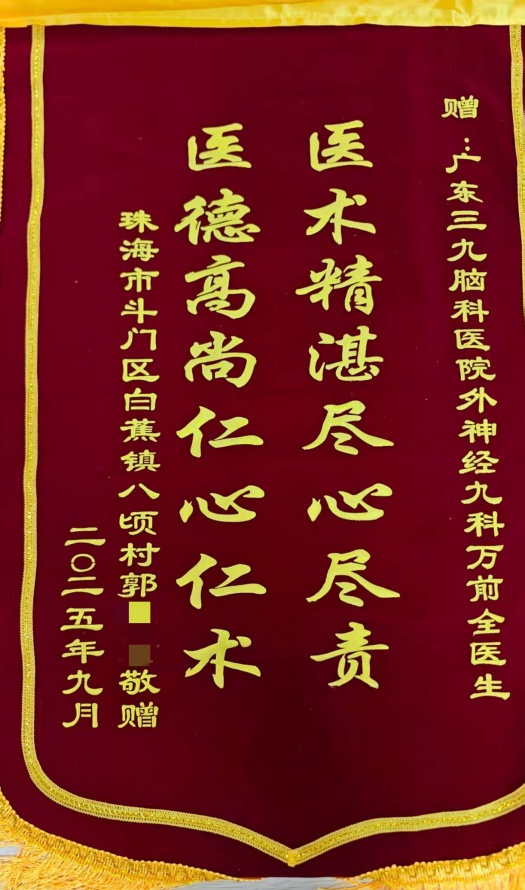 赠：广东三九脑科医院外神经九科万前全医生
医术精湛尽心尽责
医德高尚仁心仁术
珠海市斗门区白蕉镇八顷村郭敬赠
二〇二五年九月